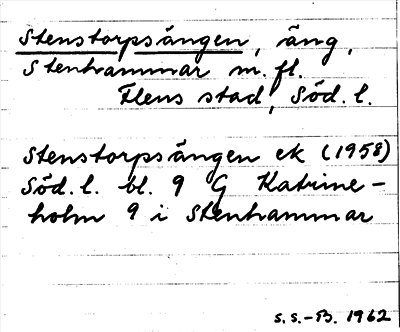 Stenstorpsängen, äng,
Stenhammar m.fl.
Flens stad, Söd. l.
Stenstorpsängen ek (1958)
Söd. l. bl. 9 G Katrine-
holm 9 i Stenhammar
S.S.-B. 1962